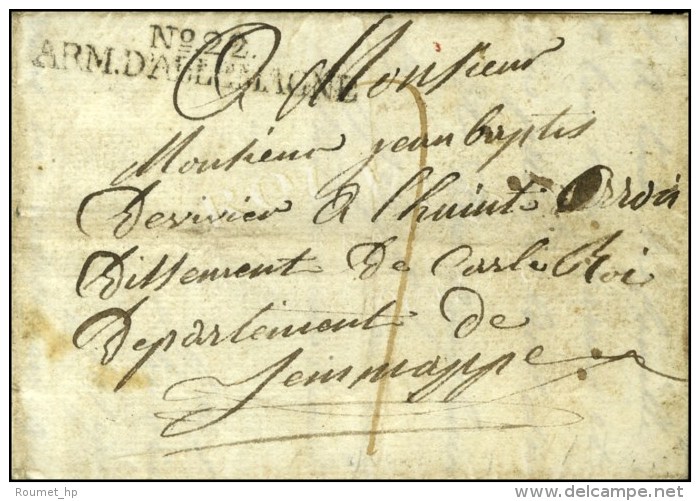 No. 22.
ARM. D'ALLEMAGNE
A Monsieur
Monsieur jean baptis
Devivier a Lhuint Arron
dissement de Carle Roi
Departement de
Jemmappe
Roumet_hp
www.delcampe.net